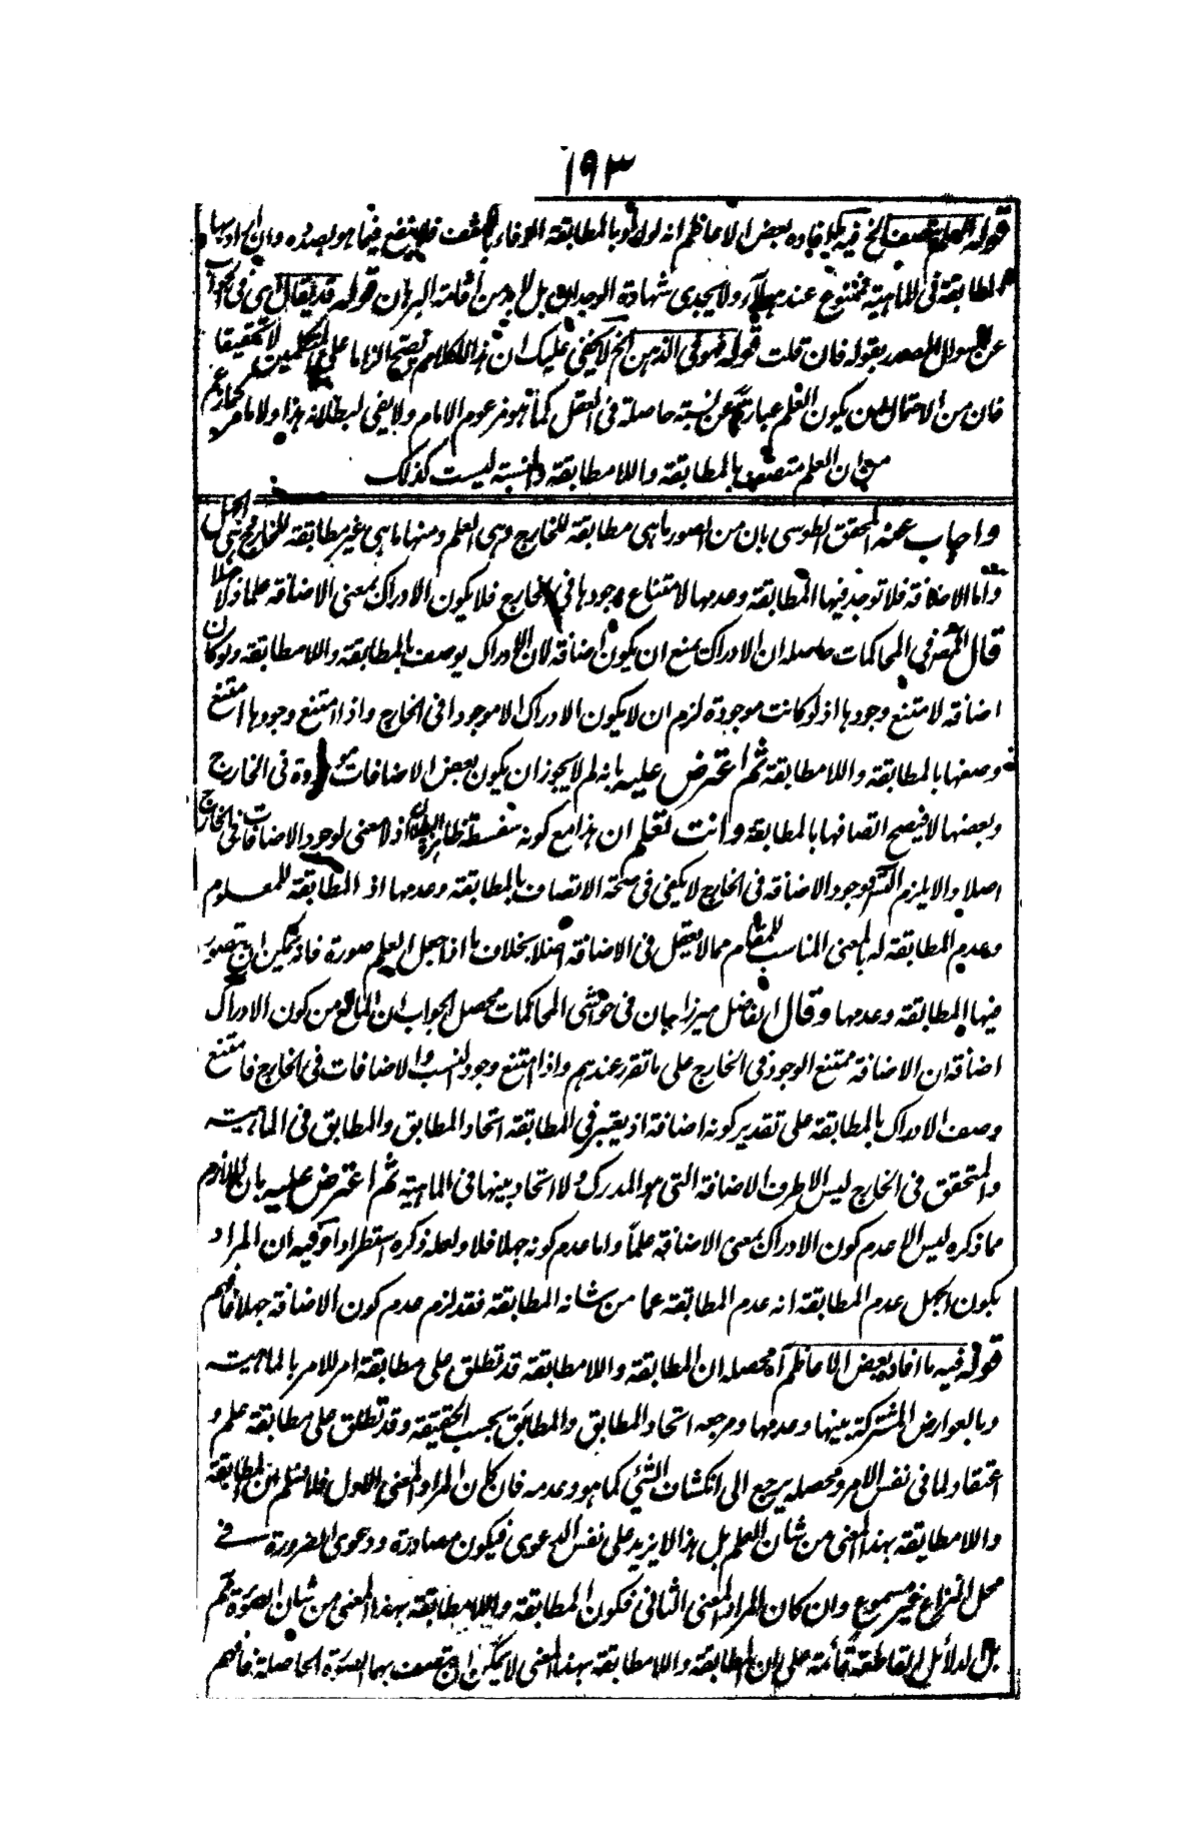 ١٩٣
قوله العلم يتصف الخ فيه ما افاده بعض الاعاظم انه لو اريد بالمطابقة فلا ينفع فيما هو بصدده وان اريد بها
المطابقة فى الماهية فممنوع عند هؤلاء ولا يجدى شهادة الوجدان بل لا بد من اقامة البرهان قوله قد يقال اى فى الجواب
عن السوال المصدر بقوله فان قلت قوله فهو فى الذهن الخ لا يخفى عليك ان هذا الكلام يصح الزاما على المتكلمين لا تحقيقا
فان من الاحتمال ان يكون العلم عبارة عن نسبة حاصلة فى العقل كما هو مزعوم الامام ولا يفى لبطلانه هذا ولا ما مر
من ان العلم متصف بالمطابقة واللامطابقة والنسبة ليست كذلك
واجاب عنه المحقق الطوسى بان من الصور ما هى مطابقة للخارج وهى العلم ومنها ما هى غير مطابقة للخارج وهى الجهل
واما الاضافة فلا توجد فيها المطابقة وعدمها لامتناع وجودها فى الخارج فلا يكون الادراك بمعنى الاضافة علما ولا جهلا
قال المص فى المحاكمات حاصله ان الادراك يمنع ان يكون اضافة لان الادراك يوصف بالمطابقة واللامطابقة ولو كان
اضافة لامتنع وجودها اذ لو كانت موجودة لزم ان لا يكون الادراك الا موجودا فى الخارج واذا امتنع وجودها امتنع
وصفها بالمطابقة واللامطابقة ثم اعترض عليه بانه لم لا يجوز ان يكون بعض الاضافات موجودة فى الخارج
وبعضها لا فيصح اتصافها بالمطابقة وانت تعلم ان هذا مع كونه سفسطة ظاهرة البطلان اذ لا معنى لوجود الاضافات فى الخارج
اصلا والا يلزم التس فوجود الاضافة فى الخارج لا يكفى فى صحة الاتصاف بالمطابقة وعدمها اذ المطابقة للمعلوم
وعدم المطابقة له بالمعنى المناسب للمقام مما لا يعقل فى الاضافة اصلا بخلاف ما اذا جعل العلم صورة فانه يمكن ان يتصور
فيها المطابقة وعدمها وقال الفاضل ميرزا جان فى حواشى المحاكمات محصل الجواب ان المانع من كون الادراك
اضافة ان الاضافة ممتنع الوجود فى الخارج على ما تقرر عندهم واذا امتنع وجود النسب والاضافات فى الخارج فامتنع
وصف الادراك بالمطابقة على تقدير كونه اضافة اذ يعتبر فى المطابقة اتحاد المطابق والمطابق فى الماهية
والمتحقق فى الخارج ليس الا طرف الاضافة التى هو المدرك ولا اتحاد بينها فى الماهية ثم اعترض عليه بان اللازم
مما ذكره ليس الا عدم كون الادراك بمعنى الاضافة علما واما عدم كونه جهلا فلا ولعله ذكره استطرادا وفيه ان المراد
بكون الجهل عدم المطابقة انه عدم المطابقة عما من شانه المطابقة فقد لزم عدم كون الاضافة جهلا فافهم
قوله فيه ما افاده بعض الاعاظم آه محصله ان المطابقة واللامطابقة قد تطلق على مطابقة امر للامر بالماهية
وبالعوارض المشتركة بينها وعدمها ومرجعه اتحاد المطابق والمطابق بحسب الحقيقة وقد تطلق على مطابقة علم و
اعتقاد لما فى نفس الامر ومحصله يرجع الى انكشاف الشئ كما هو وعدمه فان كان المراد المعنى الاول فلا نسلم ان المطابقة
واللامطابقة بهذا المعنى من شان العلم بل هذا لا يزيد على نفس الدعوى فيكون مصادرة ودعوى الضرورة فى
محل النزاع غير مسموع وان كان المراد المعنى الثانى فكون المطابقة واللامطابقة بهذا المعنى من شان الصورة ثم
بل الدلائل القاطعة قائمة على ان المطابقة واللامطابقة بهذا المعنى لا يمكن ان يتصف بهما الصورة الحاصلة فافهم